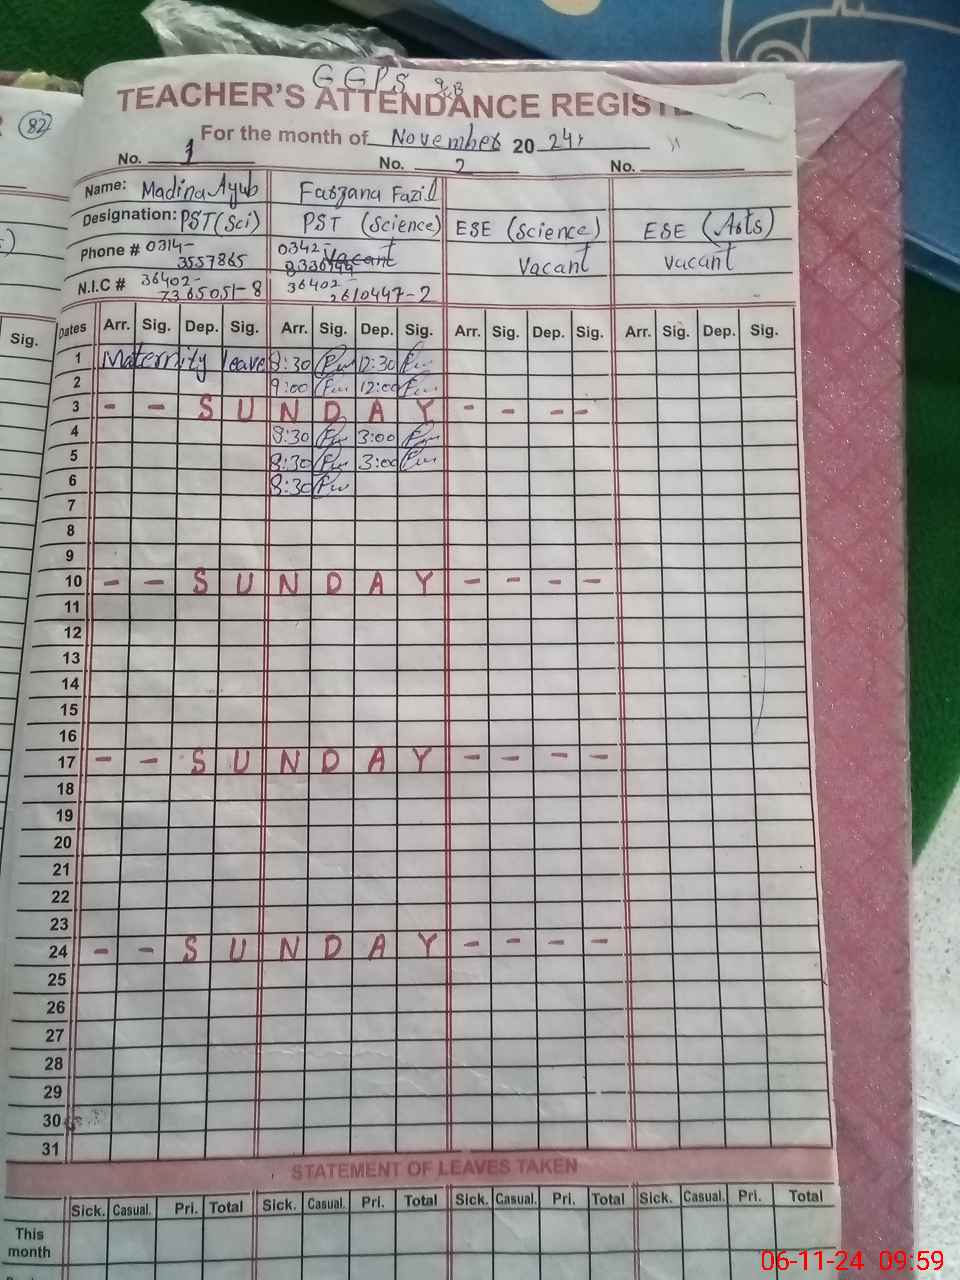 82
GGPS 9cB
TEACHER'S ATTENDANCE REGISTE
For the month of November 20 24
No. 1 No. 2 No.
Name: Madina Ayub Farzana Fazil
Designation: PST (Sci) PST (Science) ESE (Science) ESE (Arts)
Phone # 0314-3557865 0342- Vacant Vacant vacant
N.I.C # 36402-7365051-8 36402-2610447-2
Sig. Dates Arr. Sig. Dep. Sig. Arr. Sig. Dep. Sig. Arr. Sig. Dep. Sig. Arr. Sig. Dep. Sig.
1 Maternity leave 8:30 12:30
2 9:00 12:00
3 - - S U N D A Y - - - -
4 8:30 3:00
5 8:30 3:00
6 8:30
7
8
9
10 - - S U N D A Y - - - -
11
12
13
14
15
16
17 - - S U N D A Y - - - -
18
19
20
21
22
23
24 - - S U N D A Y - - - -
25
26
27
28
29
30
31
STATEMENT OF LEAVES TAKEN
Sick. Casual. Pri. Total Sick. Casual. Pri. Total Sick. Casual. Pri. Total Sick. Casual. Pri. Total
This
month
06-11-24 09:59